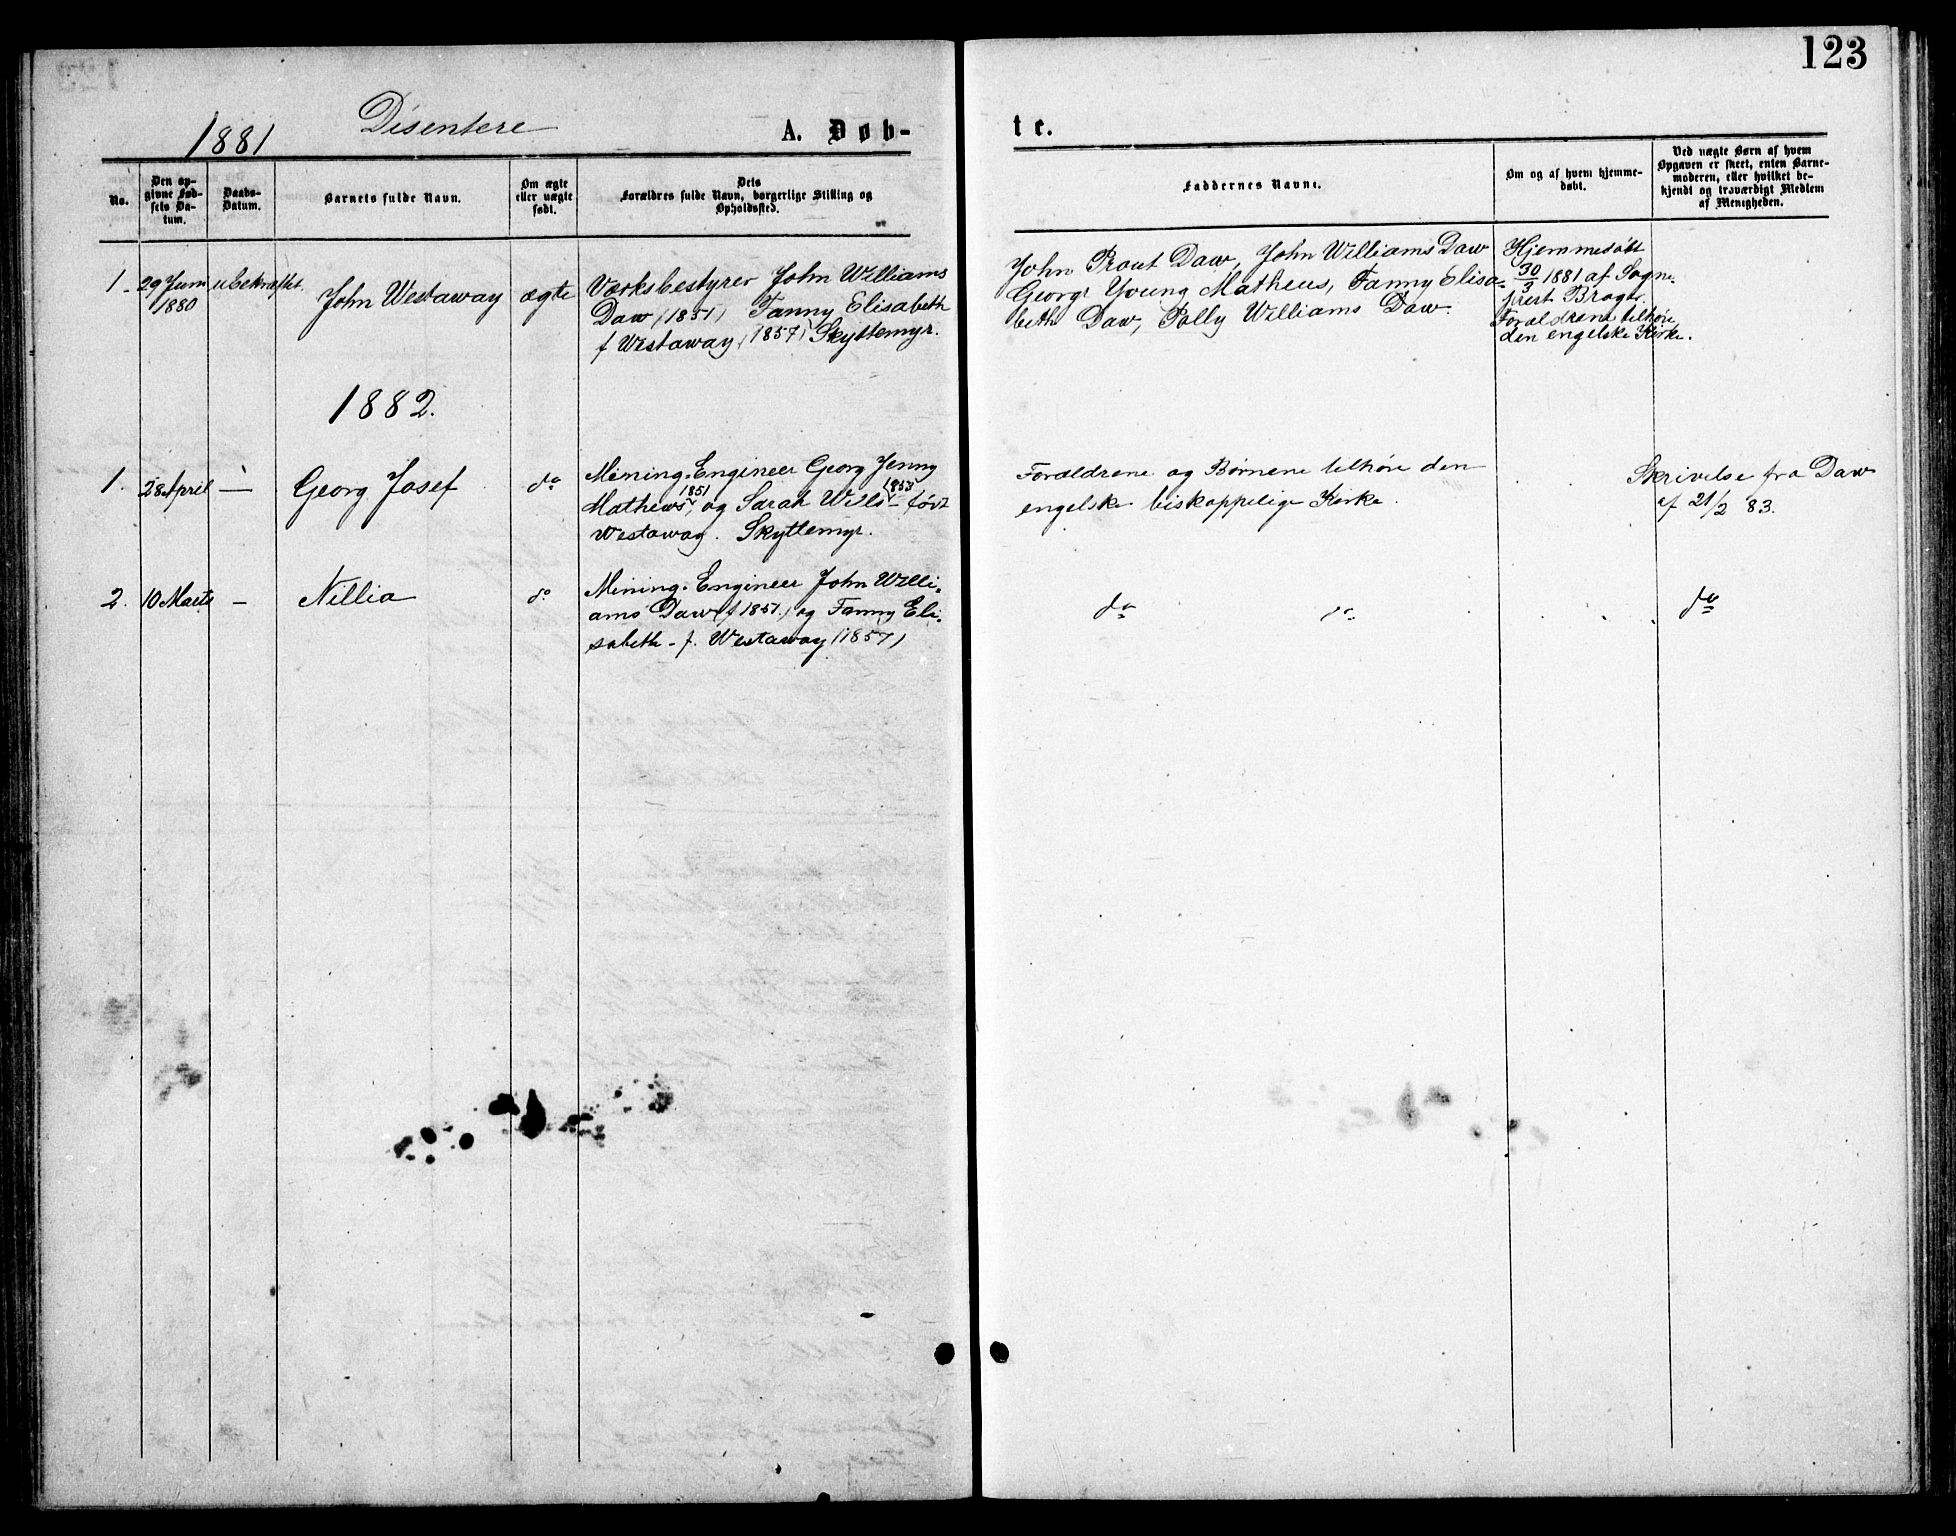 123
1881 Disentere A. Døb-
te.
No.
Den op-
givne Fød-
sels Da-
tum.
Daabs-
Datum.
Barnets fulde Navn.
Om ægte
eller uægte
født.
Dets
Forældres fulde Navn, borgerlige Stilling og
Opholdssted.
Faddernes Navne.
Om og af hvem hjemme-
døbt.
Ved uægte Børn af hvem
Opgaven er skeet, enten Barne-
moderen, eller hvilket be-
kjendt og troværdigt Medlem
af Menigheden.
1. 29 Juni
1880
ubekræftet.
John Westaway
ægte
Værksbestyrer John Williams
Daw (1851) Fanny Elisabeth
f Westaway (1857) Skyttemyr.
John Prout Daw, John Williams Daw
George Young Matheus, Fanny Elisa-
beth Daw, Polly Williams Daw.
Hjemmedøbt
30/3 1881 af Sogne-
prest Brager.
Forældrene tilhøre
den engelske Kirke.
1882.
1. 28 April —
Georg Josef
do
Mining-Engineer Georg Jenny
Mathews 1851 og Sarah Wills 1853 født
Westaway. Skyttemyr.
Forældrene og Børnene tilhøre den
engelske biskoppelige Kirke.
Skrivelse fra Daw
af 21/2 83.
2. 10 Marts —
Nillia
do
Mining-Engineer John Willi-
ams Daw (f 1851.) og Fanny Eli-
sabeth - f. Westaway (1857)
do do
do